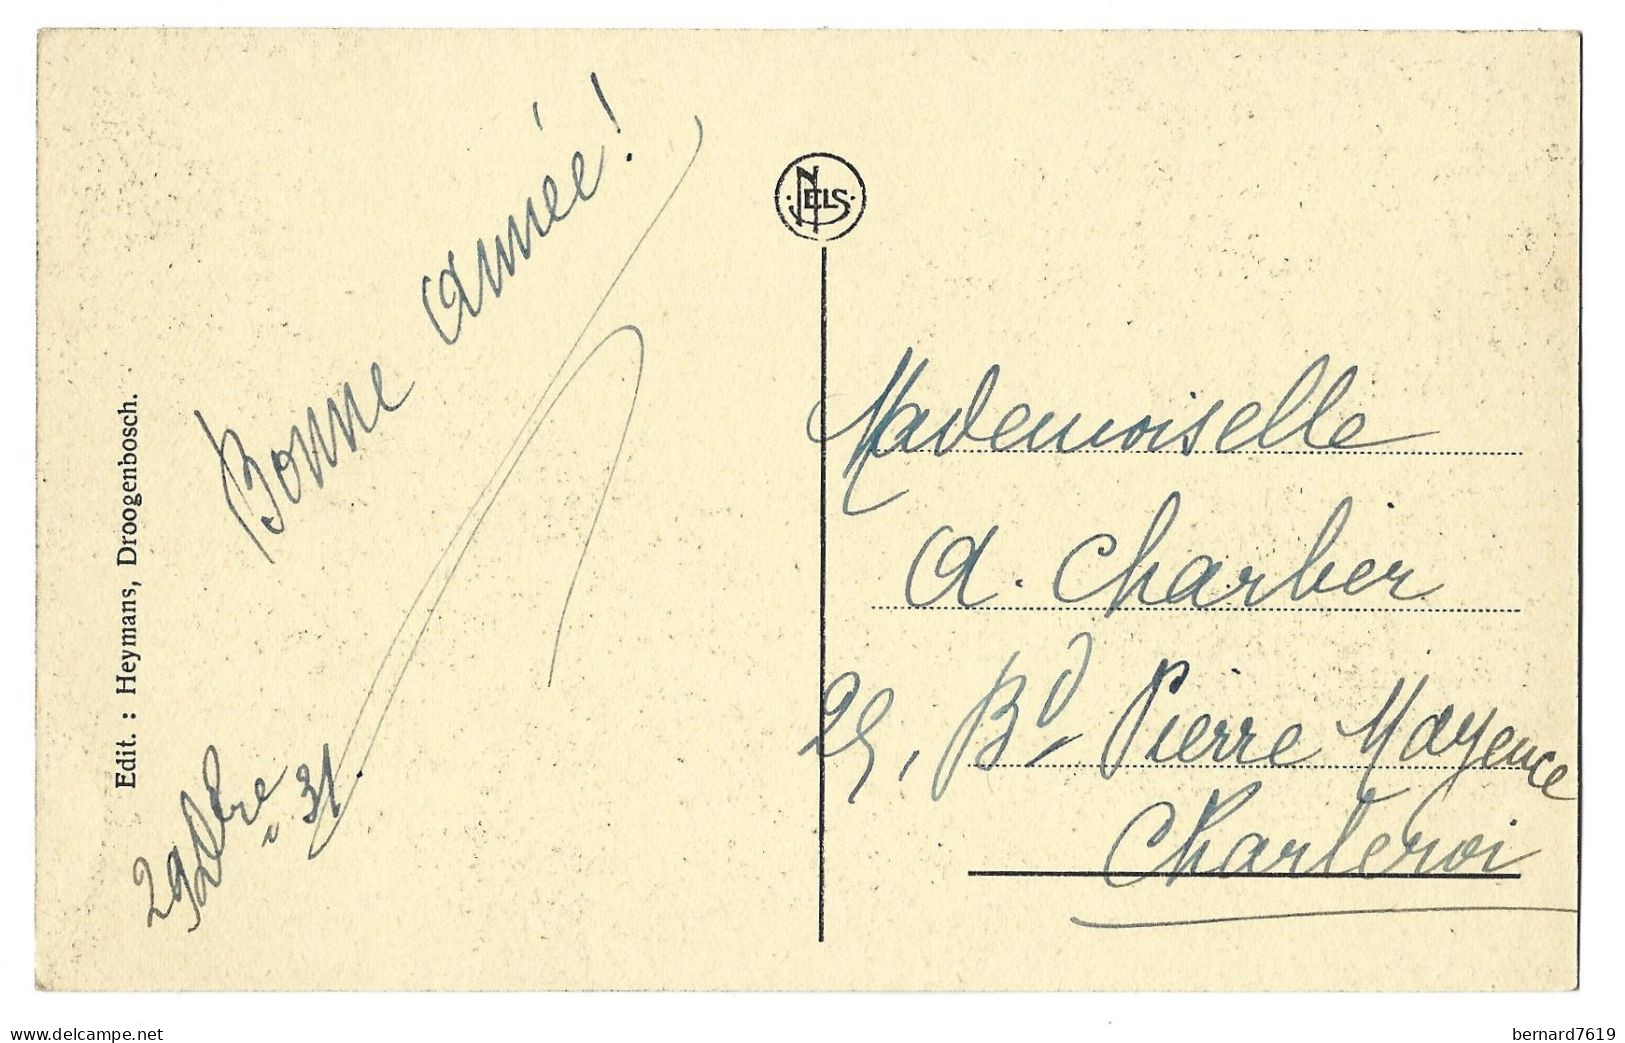 Bonne année !
29 Xbre
" 31.
Edit. : Heymans, Droogenbosch.
NELS
Mademoiselle
A. Charlier
25, Bd Pierre Mayence
Charleroi
www.delcampe.net
bernard7619